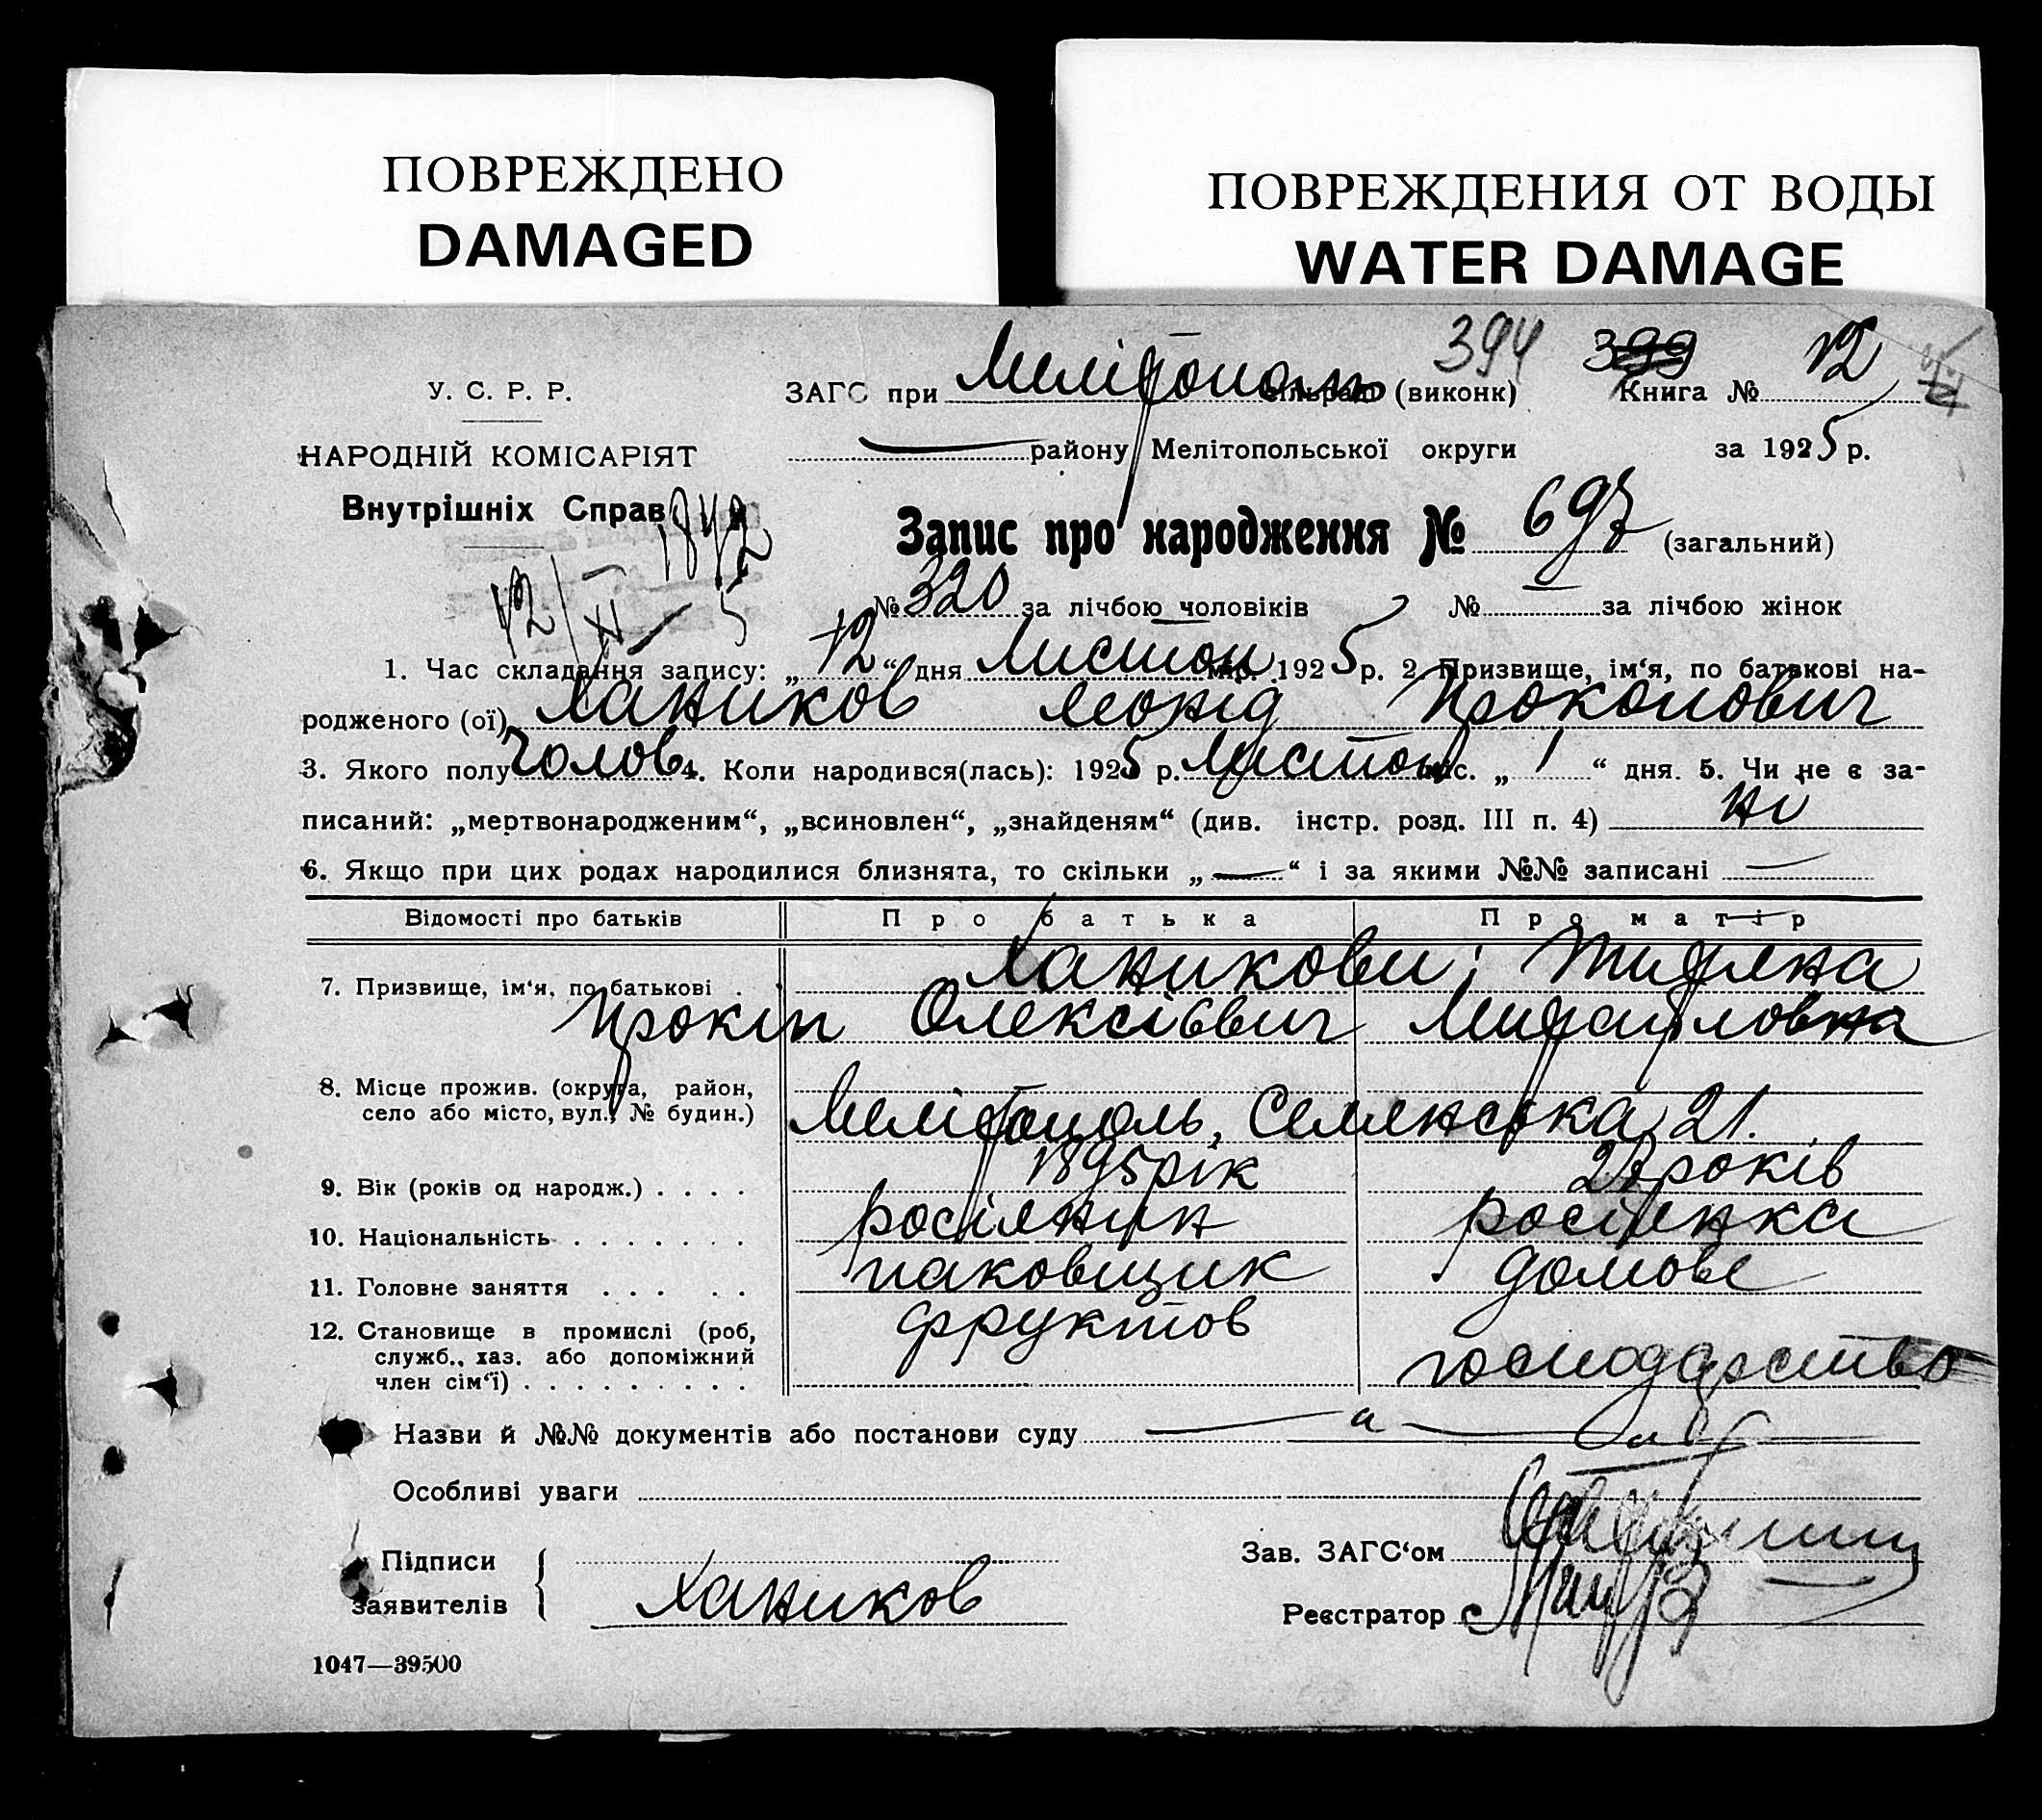 ПОВРЕЖДЕНО
DAMAGED
ПОВРЕЖДЕНИЯ ОТ ВОДЫ
WATER DAMAGE
394 399 12
У. С. Р. Р.
ЗАГС при Мелітополь сільраді (виконк) Книга №
НАРОДНІЙ КОМІСАРІЯТ
району Мелітопольської округи за 1925 р.
Внутрішніх Справ
1842
Запис про народження № 697 (загальний)
12/XI – 5
№ 320 за лічбою чоловіків № — за лічбою жінок
1. Час складання запису: „12“ дня Листоп. міс. 1925 р. 2. Призвище, ім‘я, по батькові на-
родженого (ої) Хаников Леонід Прокопович
3. Якого полу Голов 4. Коли народився(лась): 1925 р. Листоп. міс. „1“ дня. 5. Чи не є за-
писаний: „мертвонародженим“, „всиновлен“, „знайденям“ (див. інстр. розд. III п. 4) ні
6. Якщо при цих родах народилися близнята, то скільки „—“ і за якими №№ записані —
Відомості про батьків Про батька Про матір
7. Призвище, ім‘я, по батькові . . Ханикови;
Прокіп Олексієвич
8. Місце прожив. (округа, район,
село або місто, вул., № будин.) Мелітополь, 21.
9. Вік (років од народж.) . . . . 1895 рік років
10. Національність . . . . . . . росіянин росіянка
11. Головне заняття . . . . . паковщик домове
12. Становище в промислі (роб, фруктов
служб., хаз. або допоміжний господарство
член сім‘ї) . . . . . . . . .
Назви й №№ документів або постанови суду
Особливі уваги
Зав. ЗАГС‘ом
Підписи
заявителів Хаников
Реєстратор
1047—39500